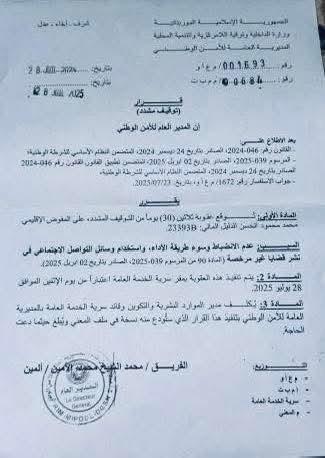 الجمهورية الإسلامية الموريتانية
شرف - إخاء - عدل
وزارة الداخلية وترقية اللامركزية والتنمية المحلية
المديرية العامة للأمن الوطني
رقم: 001693 / م ع أ و
بتاريخ:
رقم: 00684 / م م ب ت
بتاريخ: 28 JUIL 2025
قرار
(توقيف مشدد)
إن المدير العام للأمن الوطني
بعد الاطلاع على:
- القانون رقم: 046-2024، الصادر بتاريخ 24 ديسمبر 2024، المتضمن النظام الأساسي للشرطة الوطنية؛
- المرسوم 039-2025، الصادر بتاريخ 02 ابريل 2025، المتضمن تطبيق القانون القانون رقم 046-2024
الصادر بتاريخ 24 ديسمبر 2024، المتضمن النظام الأساسي للشرطة الوطنية؛
- جواب الاستفسار رقم 1672/ م ع أ و، بتاريخ 2025/07/23.
يقرر
المادة الأولى: توقع عقوبة ثلاثين (30) يوما من التوقيف المشدد، على المفوض الإقليمي
محمد محمود الحسن الدليل المالي: 23393B.
السبب: عدم الانضباط وسوء طريقة الأداء، واستخدام وسائل التواصل الاجتماعي في
نشر قضايا غير مرخصة (المادة 90 من المرسوم 039-2025، الصادر بتاريخ 02 ابريل 2025).
المادة 2: يتم تنفيذ هذه العقوبة بمقر سرية الخدمة العامة اعتبارا من يوم الإثنين الموافق
28 يوليو 2025.
المادة 3: يكلف مدير الموارد البشرية والتكوين وقائد سرية الخدمة العامة بالمديرية
العامة للأمن الوطني بتنفيذ هذا القرار الذي ستودع منه نسخة في ملف المعني ويبلغ حيثما دعت
الحاجة.
الفريق / محمد الشيخ محمد الأمين / ألمين
التوزيع:
- م ع أ و
- أ م ب ت
- سرية الخدمة العامة
- م المعني
المدير العام
Le Directeur
Général